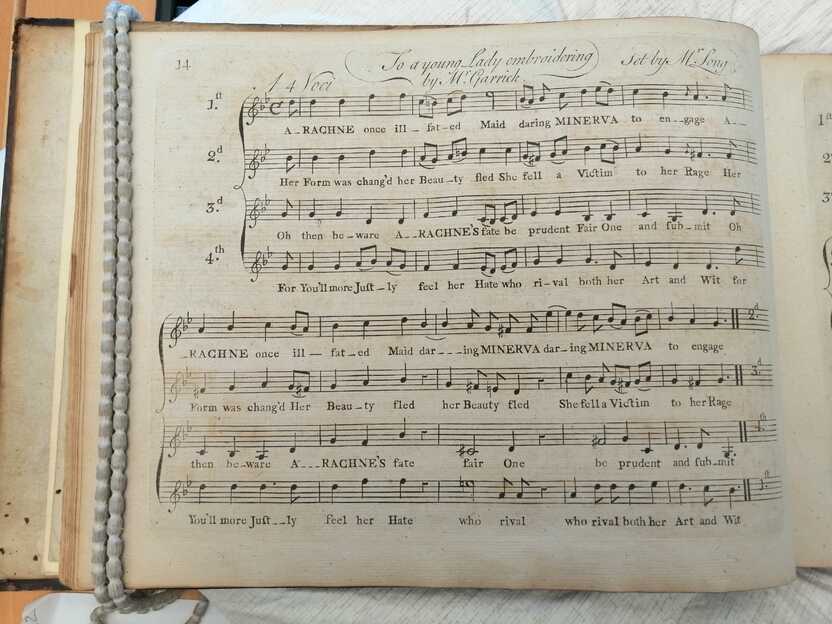 14
To a young Lady embroidering
by Mr. Garrick.
Set by Mr. Long
A 4 Voci
1.st
A_RACHNE once ill_fat_ed Maid daring MINERVA to en__gage A__
2.d
Her Form was chang'd her Beau_ty fled She fell a Victim to her Rage Her
3.d
Oh then be_ware A__RACHNE'S fate be prudent Fair One and sub_mit Oh
4.th
For You'll more Just_ly feel her Hate who ri_val both her Art and Wit for
_RACHNE once ill_fat_ed Maid dar___ing MINERVA dar_ing MINERVA to engage
2.d
Form was chang'd Her Beau_ty fled her Beauty fled She fell a Victim to her Rage
3.d
then be_ware A___RACHNE'S fate fair One be prudent and sub_mit
4.th
You'll more Just__ly feel her Hate who rival who rival both her Art and Wit
1.st